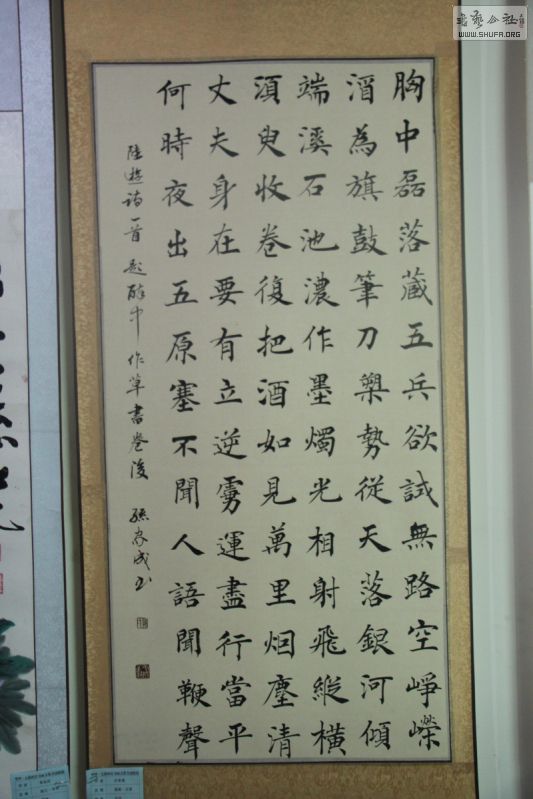 胸中磊落藏五兵欲試無路空崢嶸
酒為旗鼓筆刀槊勢從天落銀河傾
端溪石池濃作墨燭光相射飛縱橫
須臾收卷復把酒如見萬里烟塵清
丈夫身在要有立逆虜運盡行當平
何時夜出五原塞不聞人語聞鞭聲
陸遊詩一首 題醉中作草書卷後 孫家成書
書藝公社
WWW.SHUFA.ORG